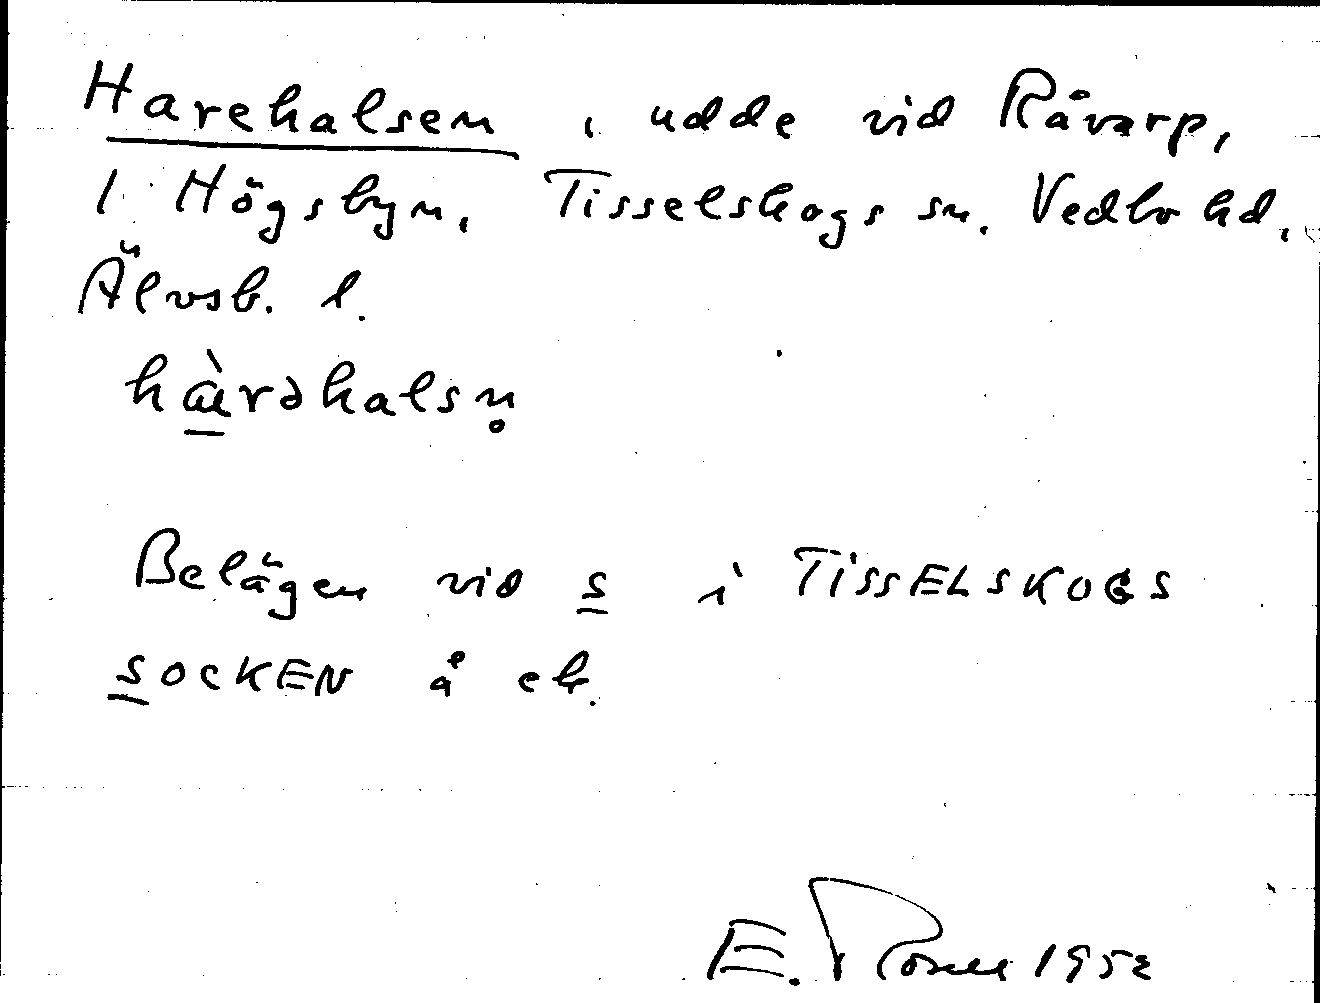 Harehalsen, udde vid Råvarp,
1 Högsbyn, Tisselskogs sn. Vedbo hd.
Älvsb. l.
hàrəhalsn̥
Belägen vid s i TISSELSKOGS
SOCKEN å ek.
E. Rosell 1952